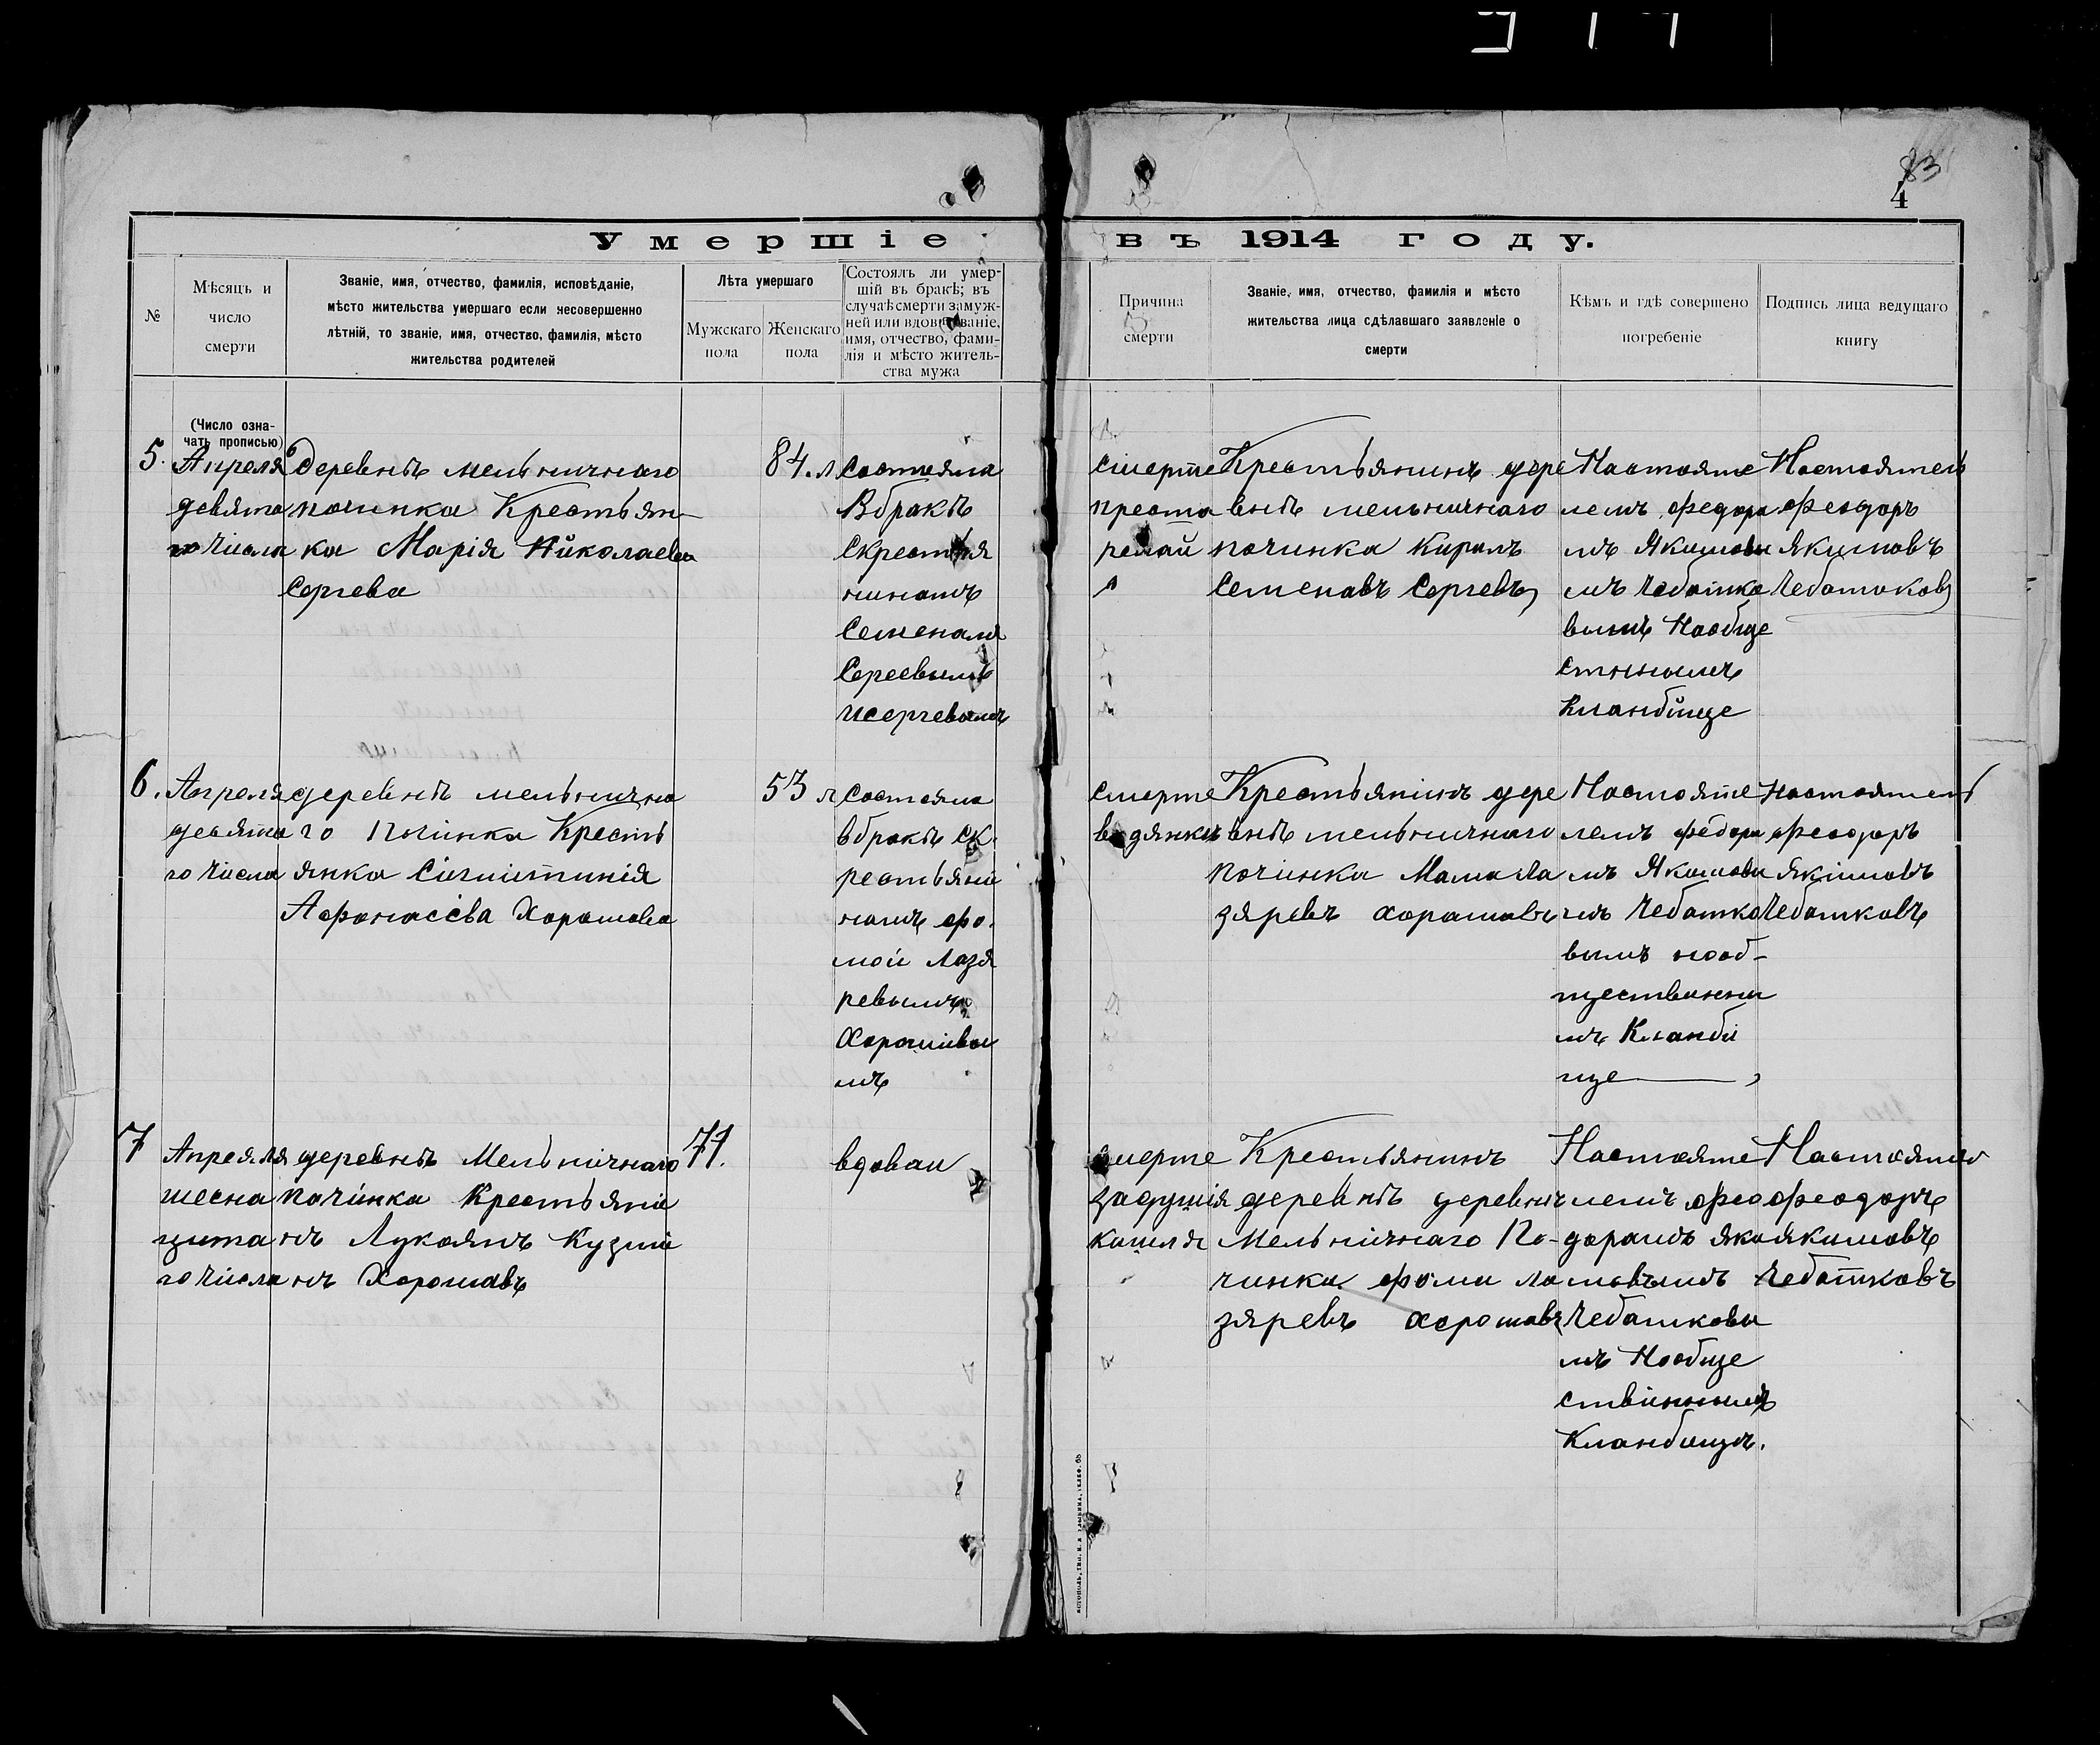 83
4
Умершіе въ 1914 году.
№
Мѣсяцъ и
число
смерти
Званіе, имя, отчество, фамилія, исповѣданіе,
мѣсто жительства умершаго если несовершенно
лѣтній, то званіе, имя, отчество, фамилія, мѣсто
жительства родителей
Лѣта умершаго
Мужскаго
пола
Женскаго
пола
Состоялъ ли умер-
шій въ бракѣ; въ
случаѣ смерти замуж-
ней или вдов ваніе,
имя, отчество, фами-
лія и мѣсто житель-
ства мужа
Причина
смерти
Званіе, имя, отчество, фамилія и мѣсто
жительства лица сдѣлавшаго заявленіе о
смерти
Кѣмъ и гдѣ совершено
погребеніе
Подпись лица ведущаго
книгу
(Число озна-
чать прописью)
5.
Апреля
девято
го числа
деревнѣ мельничнаго
починка Крестьян-
ка Марія Николаева
Сергева
84. л
состояла
Вбракѣ
Скрестья
ниномъ
Семеномъ
Сергевымъ
смерте
преста
релай
Крестьянинъ дере
внѣ мельничнаго
починка Кирилъ
Семенавъ Сергевъ
Настояте
лемъ федора
мъ Якимовы
мъ Чеботко
вымъ Наобще
кланбище
Настоятель
Феодоръ
Якимовъ
Чебатоковъ
6.
Апреля
девята
го числа
деревнѣ мельнична
го Починка Кресть
янка
Афонасева Хорошова
53 л
состояла
вбракѣ ск
рестьяни
номъ фо
мой Лазя
ревымъ
Хорошевы
мъ
смерте
водянки
Крестьянинъ дере
внѣ мельничнаго
починка Мама Ла
зяревъ хорашавъ
Настояте
лемъ федора
мъ Якимовы
мъ Чебатко
вымъ нооб-
ществинны
мъ Кланби
ще
Настоятель
Феодоръ
Якимовъ
Чебатковъ
7
Апреля
шесна
цата
го числа
деревнѣ Мельничнаго
починка Крестьяни
нъ Лукоянъ Кузми
нъ Хорошавъ
71.
вдоваи
смерте
задушія
кашля
Крестьянинъ
деревнѣ деревнѣ
Мельничнаго По-
чинка фома ла
зяревъ хорошавъ
Настояте
лемъ фео
доромъ яки
мовымъ
Чебатковы
мъ Нообще
ствинымъ
Кланбищъ.
Настоятель
Феодоръ
якимовъ
Чебатковъ